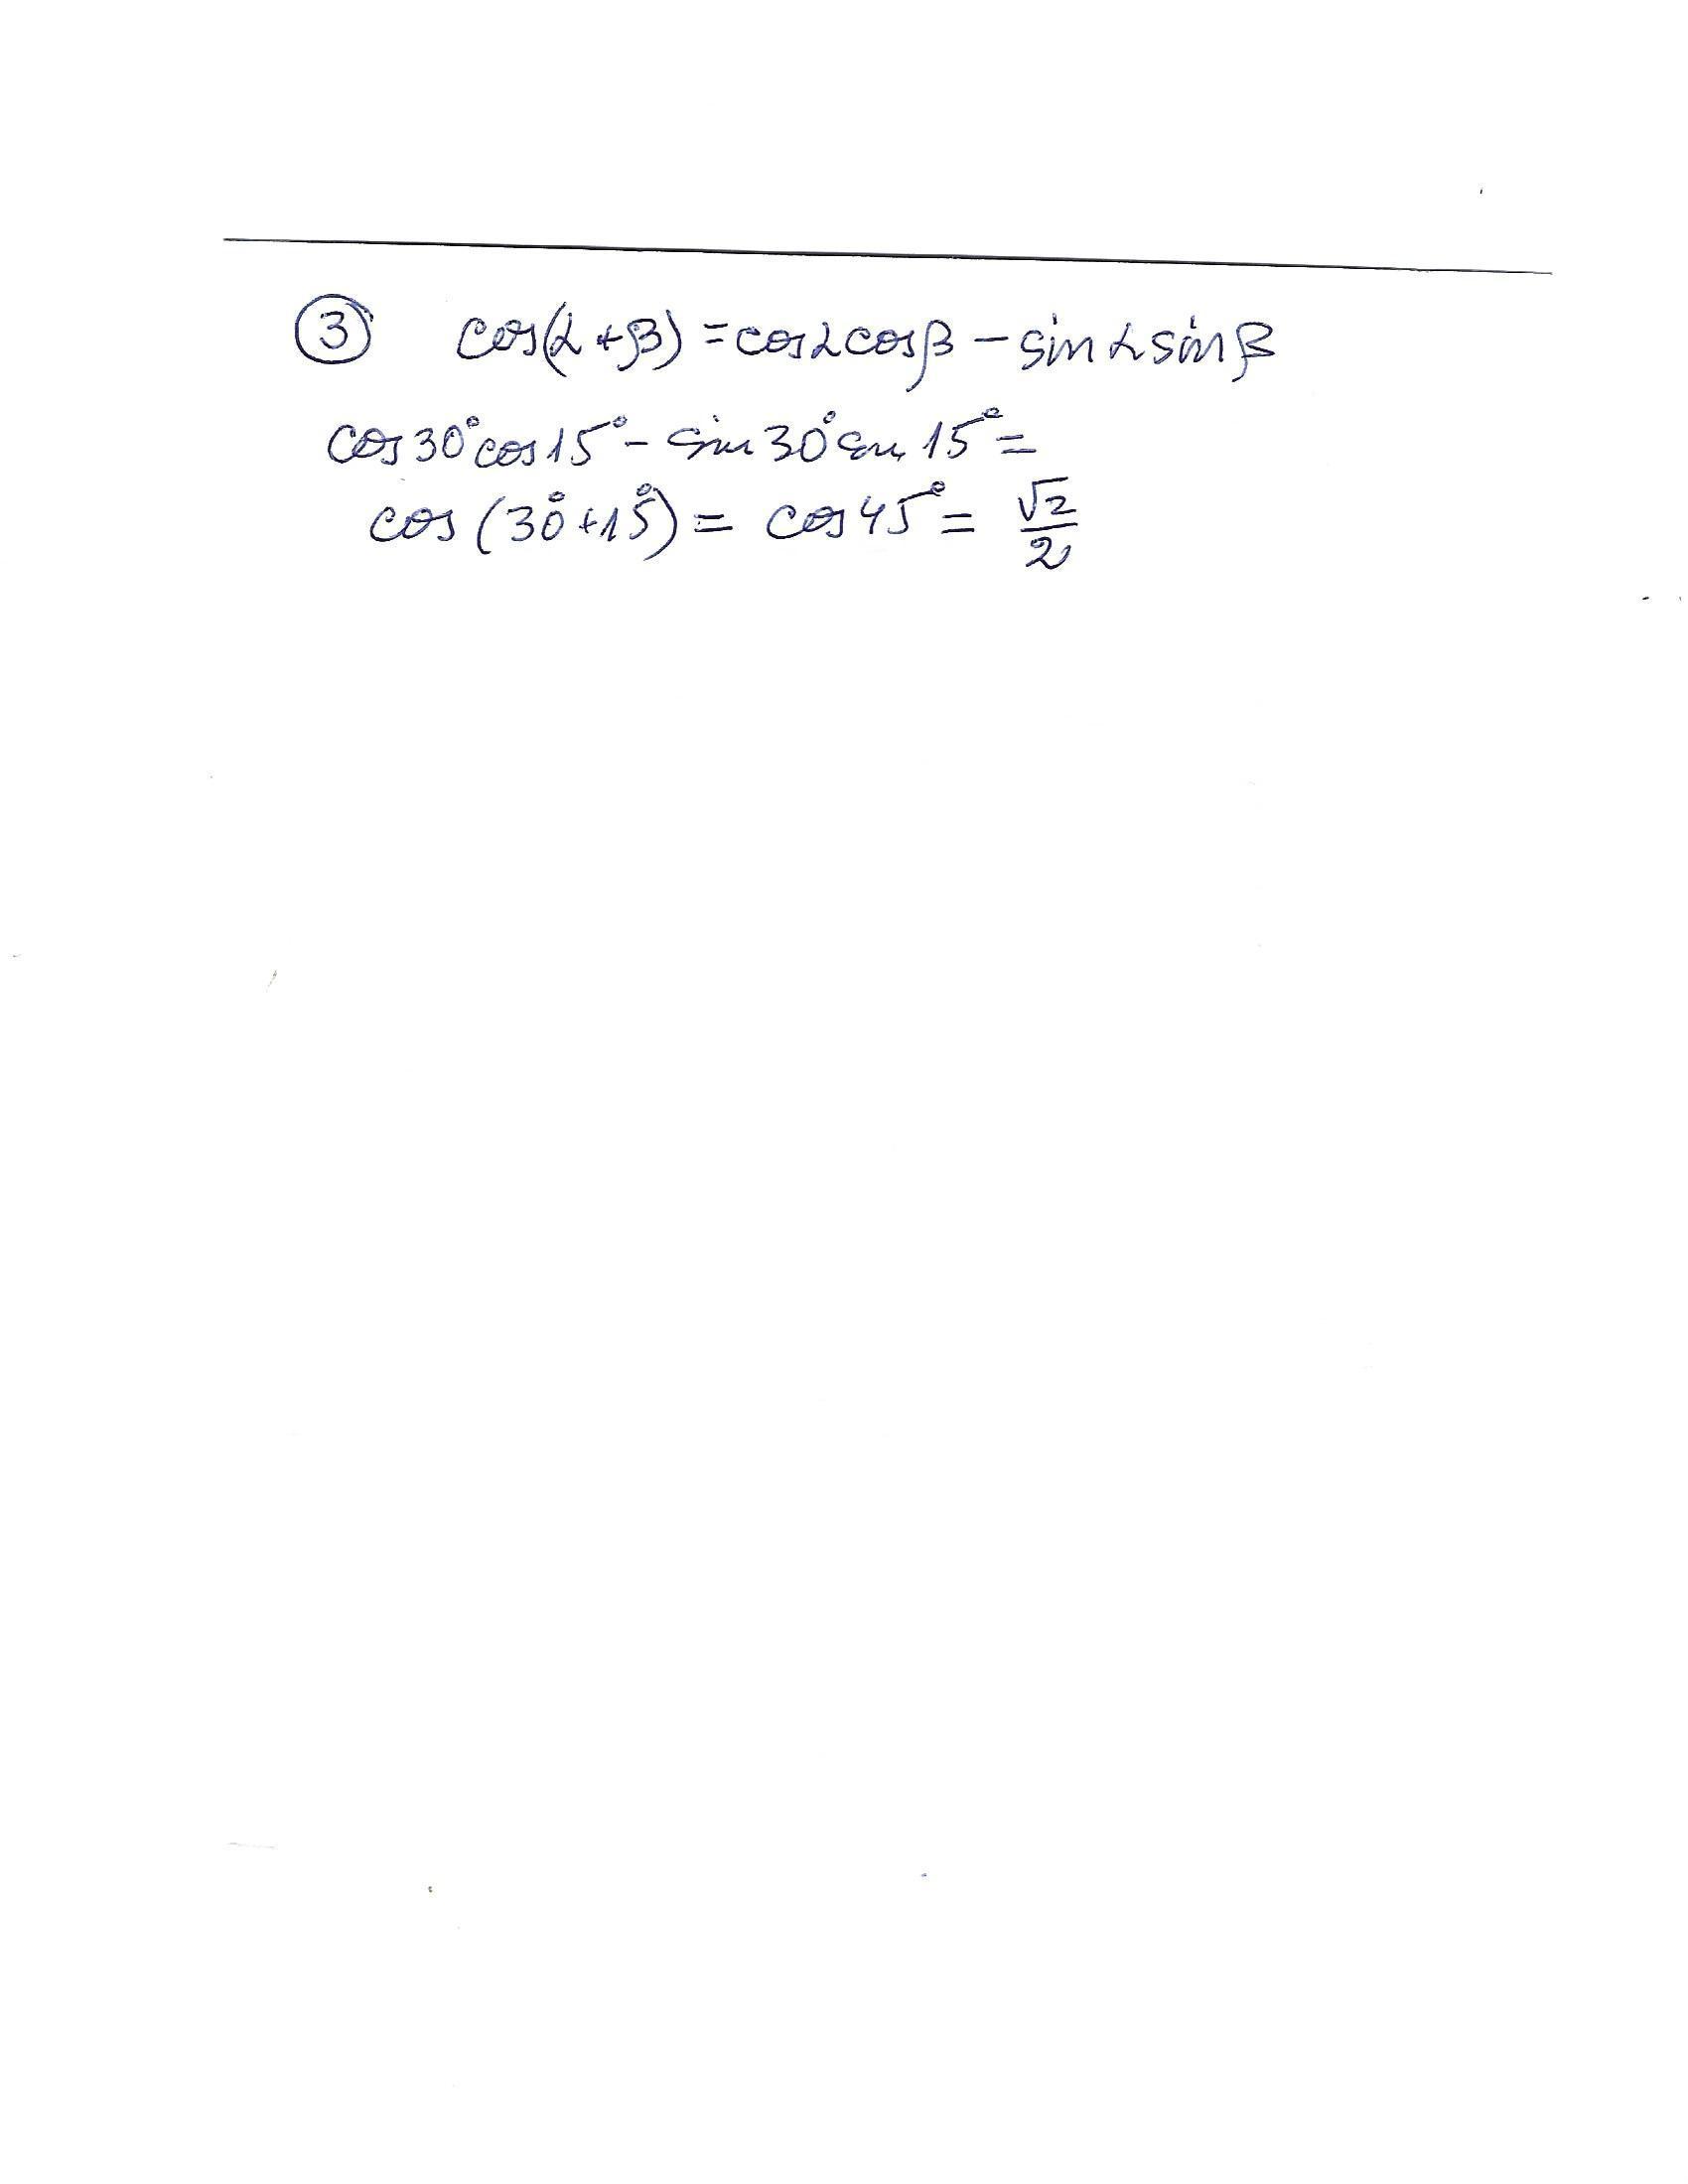 ③ cos(α+β) = cosαcosβ – sinαsinβ
cos30°cos15° – sin30°sin15° =
cos(30°+15°) = cos45° = √2/2